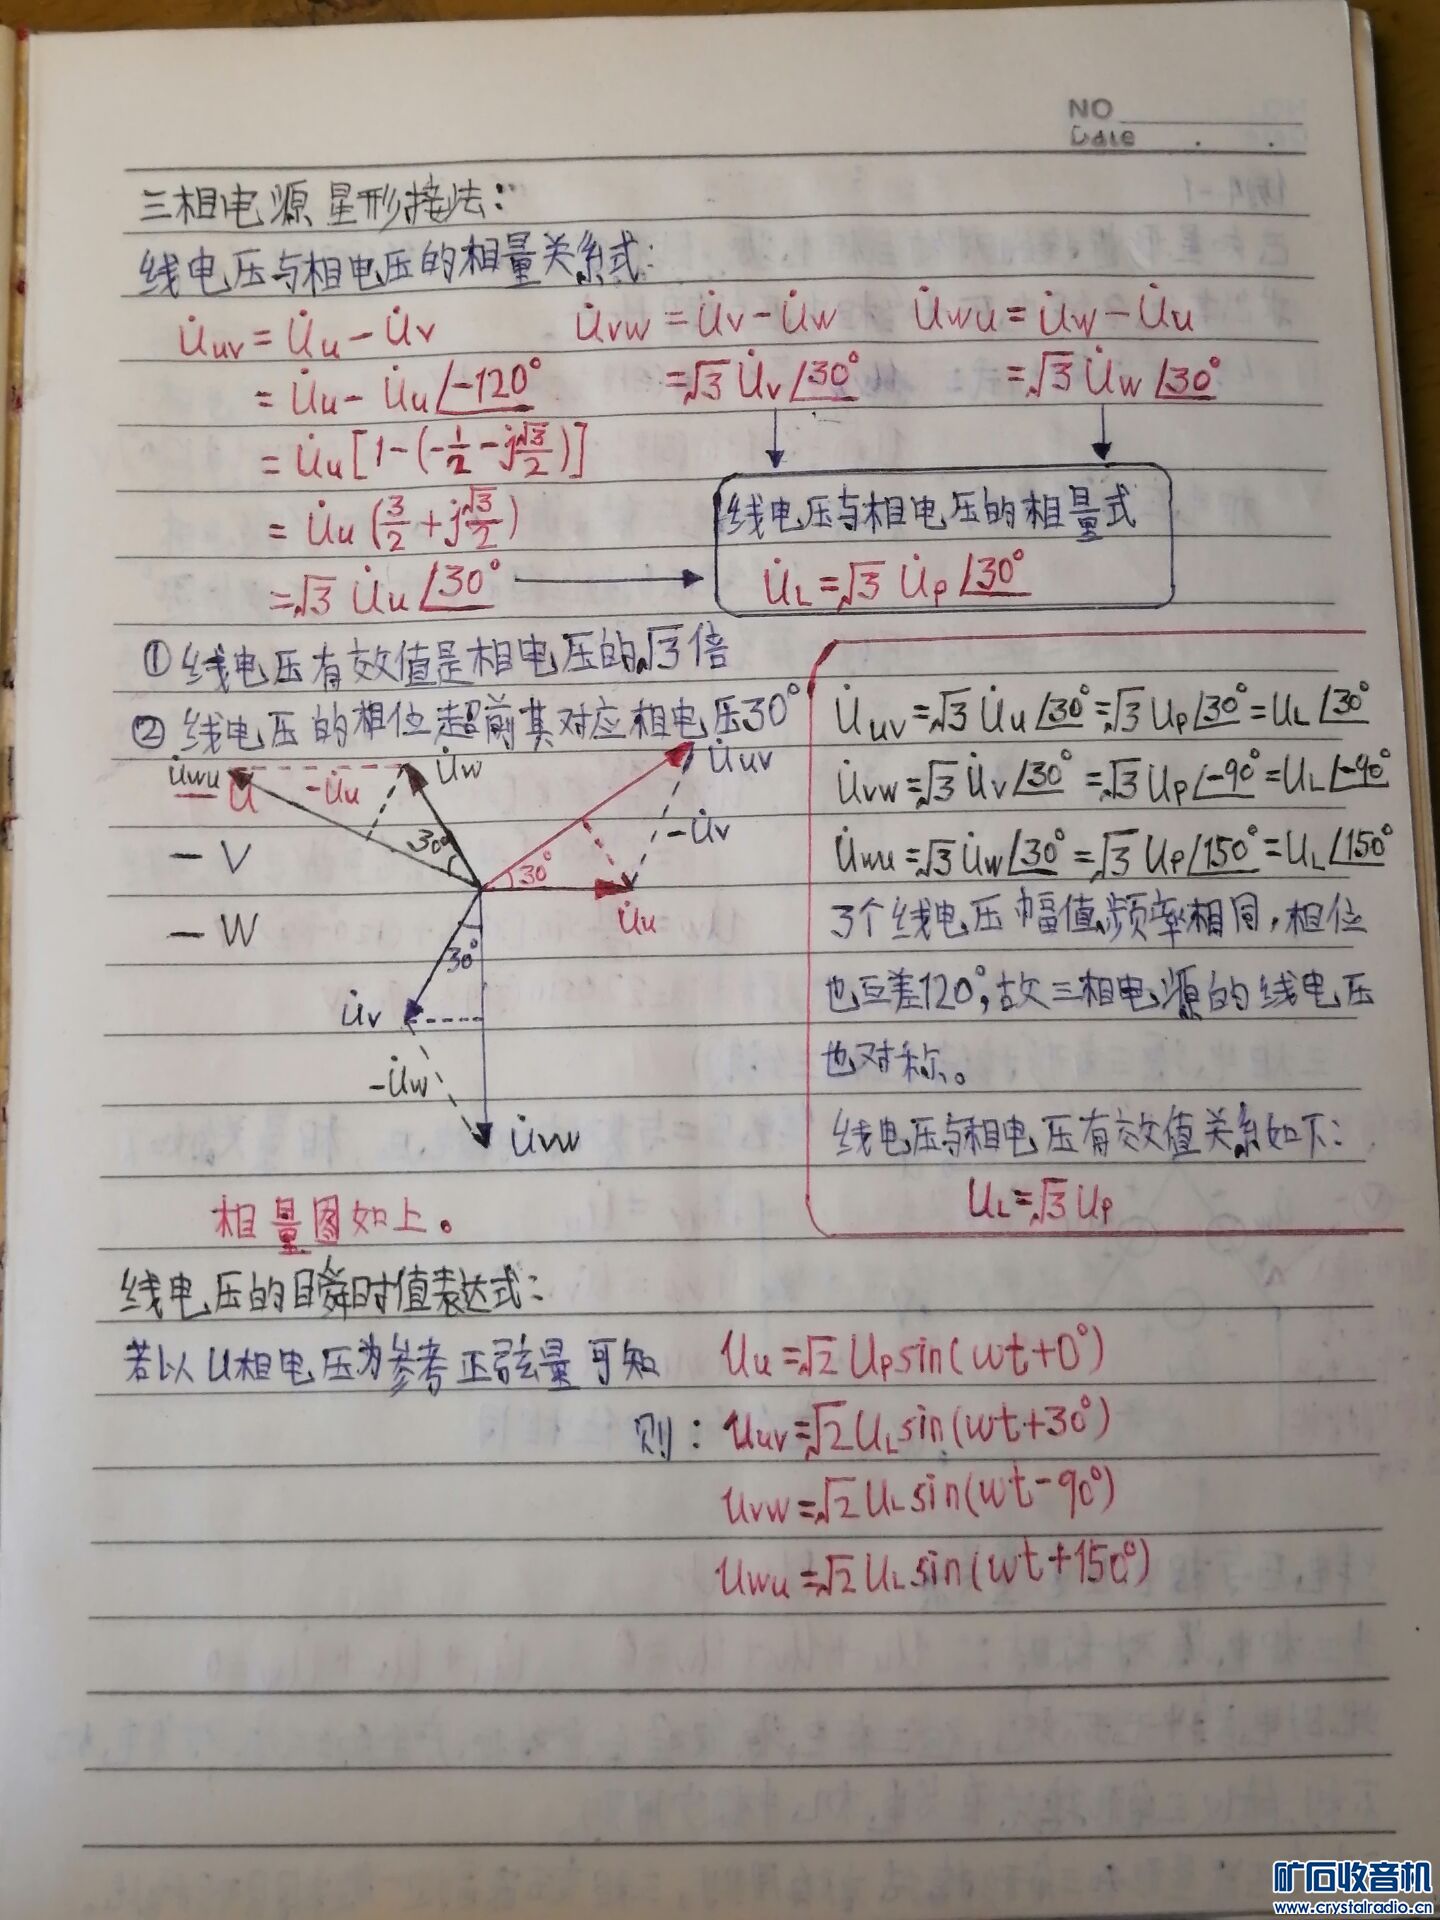 NO
Date
三相电源星形接法:
线电压与相电压的相量关系式:
U̇uv = U̇u − U̇v  U̇vw = U̇v − U̇w  U̇wu = U̇w − U̇u
= U̇u − U̇u∠−120°  = √3 U̇v∠30°  = √3 U̇w∠30°
= U̇u[1−(−1/2−j√3/2)]
= U̇u(3/2+j√3/2)
= √3 U̇u∠30°
线电压与相电压的相量式
U̇L = √3 U̇p∠30°
①线电压有效值是相电压的√3倍
②线电压的相位超前其对应相电压30°
U̇wu −U̇u U̇w U̇uv
— U
— V
— W
30° 30° −U̇v
U̇u
30°
U̇v
−U̇w
U̇vw
相量图如上。
U̇uv = √3 U̇u∠30° = √3 Up∠30° = UL∠30°
U̇vw = √3 U̇v∠30° = √3 Up∠−90° = UL∠−90°
U̇wu = √3 U̇w∠30° = √3 Up∠150° = UL∠150°
3个线电压幅值、频率相同,相位
也互差120°,故三相电源的线电压
也对称。
线电压与相电压有效值关系如下:
UL = √3 Up
线电压的瞬时值表达式:
若以U相电压为参考正弦量可知 uu = √2 Up sin(wt+0°)
则: uuv = √2 UL sin(wt+30°)
uvw = √2 UL sin(wt−90°)
uwu = √2 UL sin(wt+150°)
矿石收音机
www.crystalradio.cn